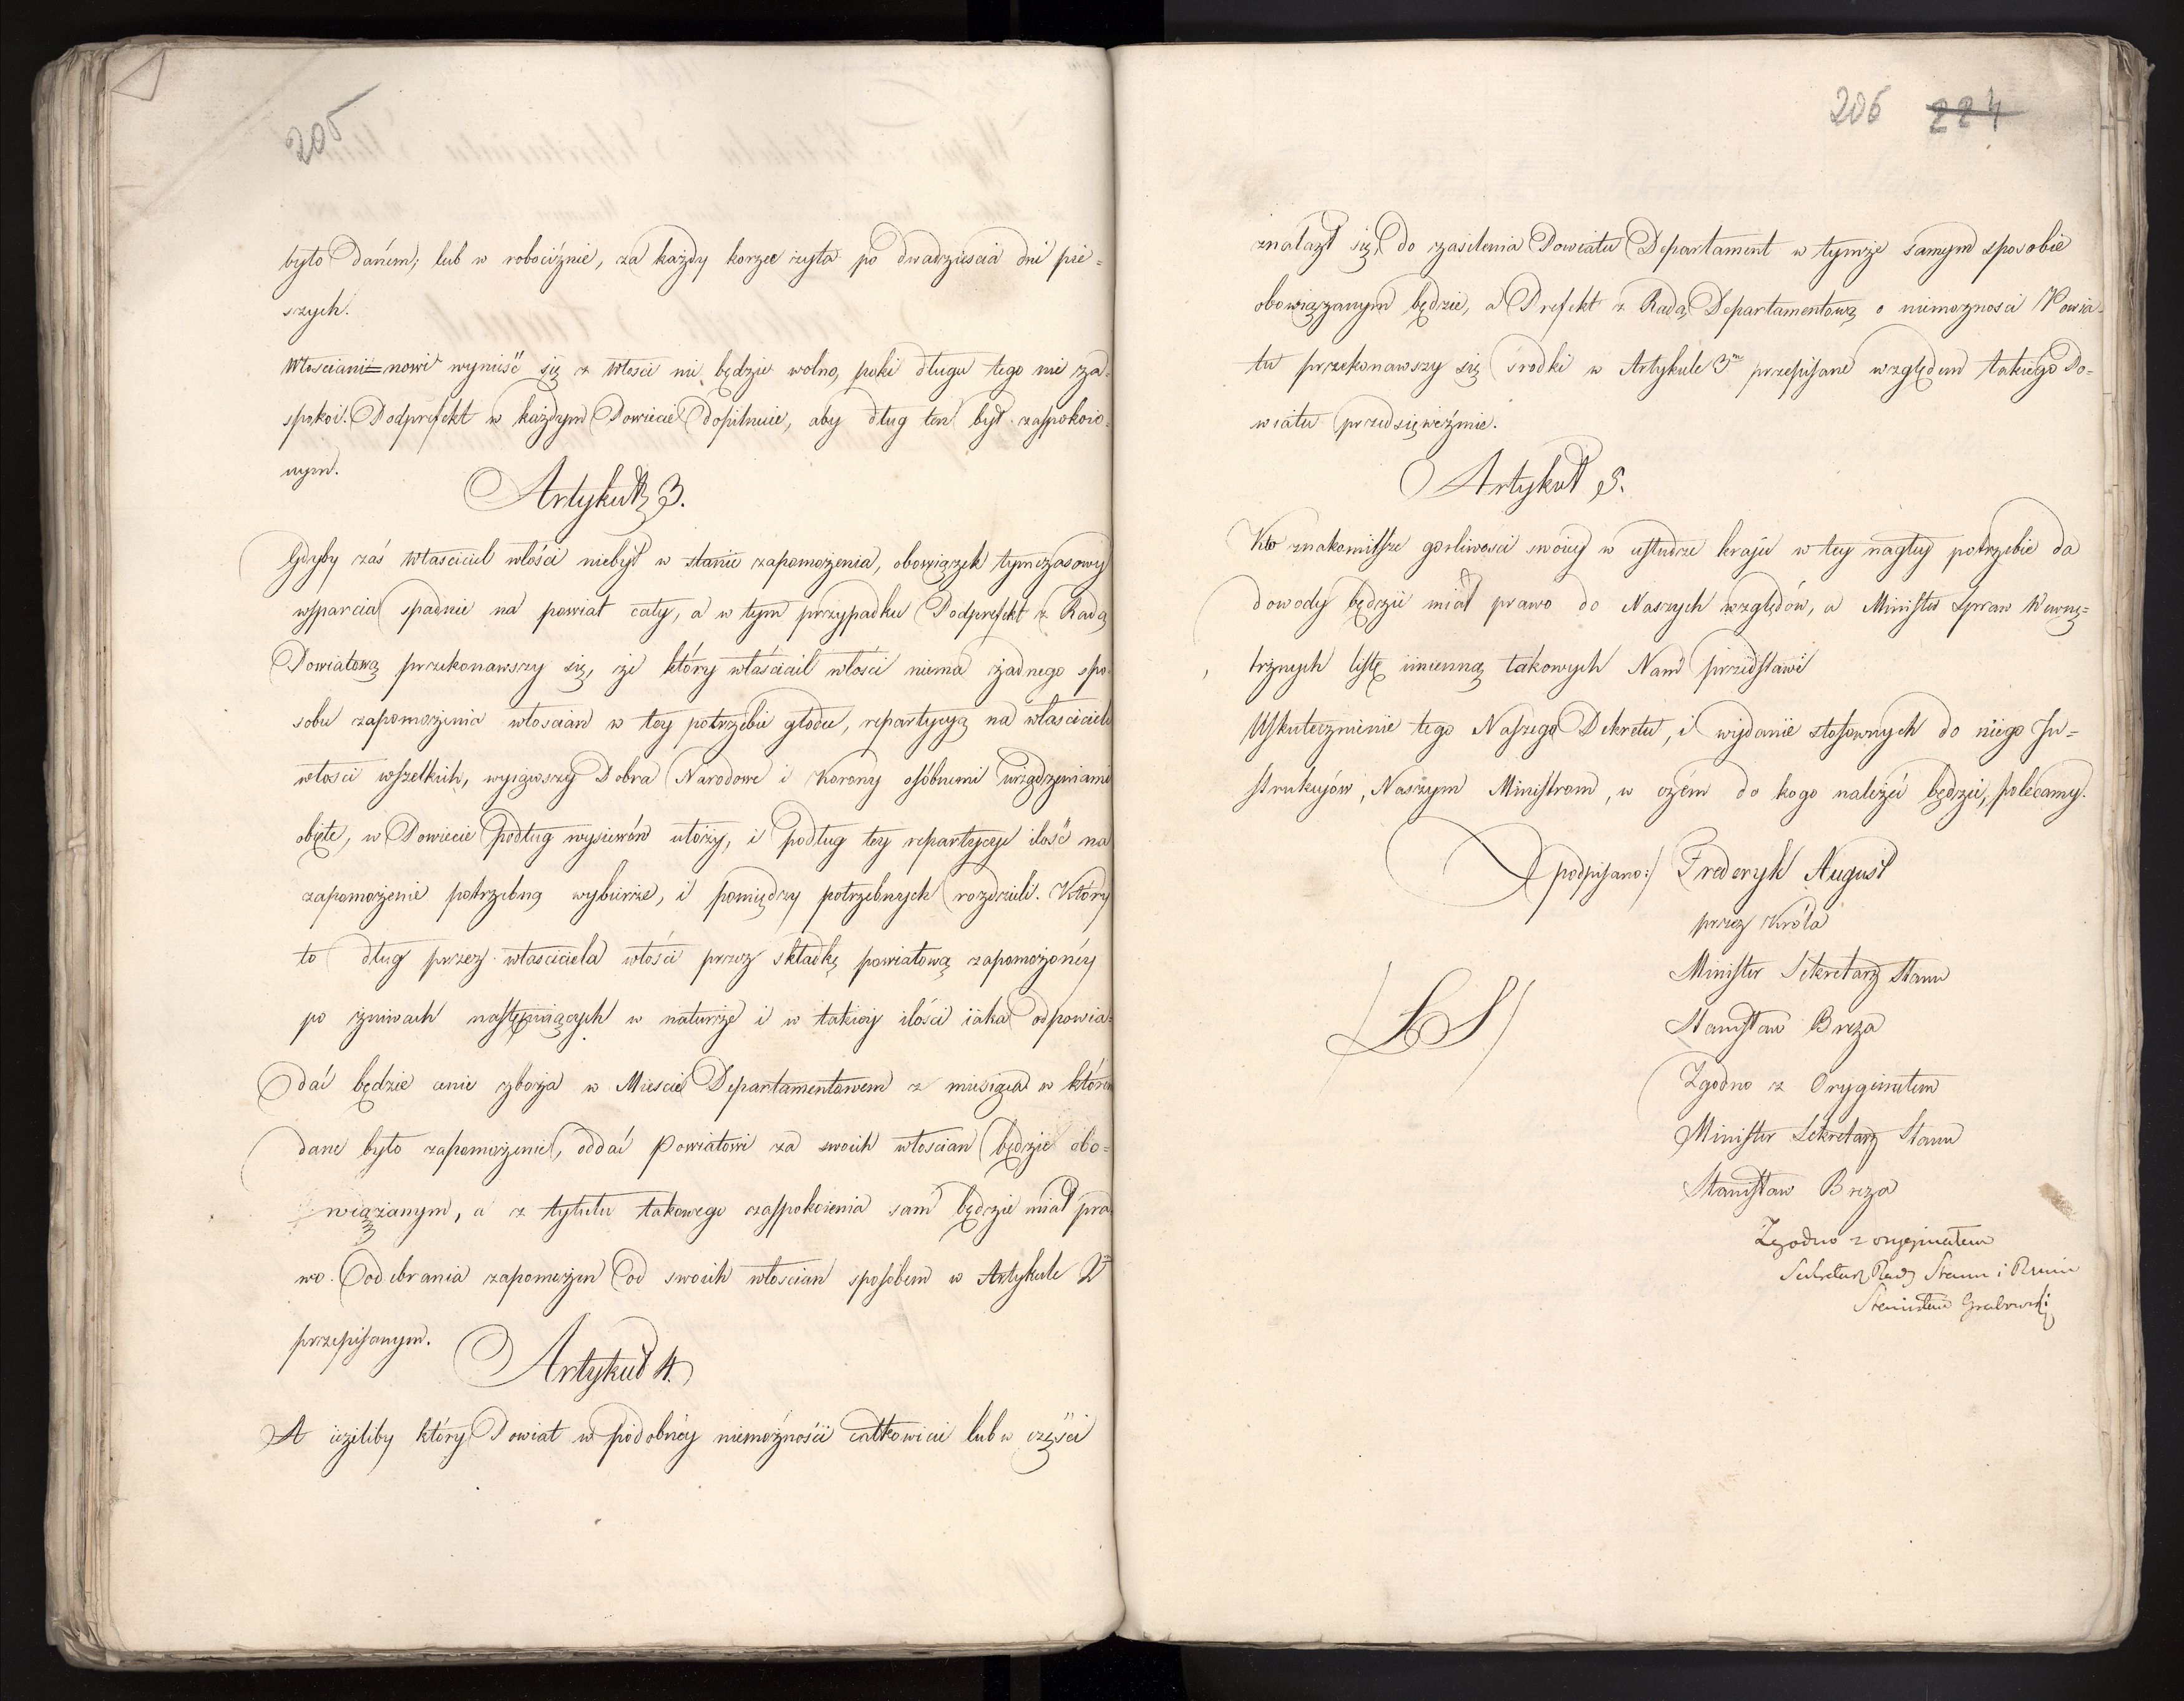 205
było daném; lub w robociźnie, za każdy korzec żyta po dwadzieścia dni pie=
szych.
Włościani=nowi wynieść się z włości nie będzie wolno, poki długu tego nie za=
spokoi. Podprefekt w każdym Powiecie dopilnuie, aby dług ten był zaspokoio=
nym.
Artykuł 3.
Gdyby zaś właściciel włości niebył w stanie zapomożenia, obowiązek tymczasowy
wsparcia spadnie na powiat cały, a w tym przypadku Podprefekt z Radą
Powiatową przekonawszy się, że który właściciel włości niema żadnego spo=
sobu zapomożenia włościan w tey potrzebie głodu, repartycyą na właścicieli
włości wszelkich, wyiąwszy Dobra Narodowe i Korony osóbnemi urządzeniami
obięte, w Powiecie podług wysiewów ułoży, i podług tey repartycyi ilość na
zapomożenie potrzebną wybierze, i pomiędzy potrzebnych rozdzieli. Który
to dług przez właściciela włości przez składkę powiatową zapomożonéy
po żniwach następuiących w naturze i w takiey ilości iaka odpowia=
dać będzie cenie zboża w Mieście Departamentowem z miesiąca w którém
dane było zapomożenie, oddać Powiatowi za swoich włościan będzie obo=
wiązanym, a z tytułu takowego zaspokoienia sam będzie miał pra=
wo odebrania zapomożen od swoich włościan sposobem w Artykule 2m
przepisanym.
Artykuł 4.
A ieżeliby który Powiat w podobnéy niemożności całkowicie lub w części
206 224
znalazł się, do zasilenia Powiatu Departament w tymże samym sposobie
obowiązanym będzie, a Prefekt z Radą Departamentową o niemożności Powia=
tu przekonawszy się środki w Artykule 3m przepisane względem takiego Po=
wiatu przedsięweźmie.
Artykuł 5.
Kto znakomitsze gorliwości swoiey w usłudze kraju w tey nagłey potrzebie da
dowody będzie miał prawo do Naszych względów, a Minister Spraw Wewnę=
trznych listę imienną takowych Nam przedstawi
Uskutecznienie tego Naszego Dekretu, i wydanie stosownych do niego In=
strukcyów, Naszym Ministrom, w czém do kogo należeć będzie, polécamy.
podpisano:/ Frederyk August
przez Króla
Minister Sekretarz Stanu
/LS/
Stanisław Breza
Zgodno z Oryginałem
Minister Sekretarz Stanu
Stanisław Breza
Zgodno z oryginałem
Sekretarz Rady Stanu i Minis
Stanisław Grabowski